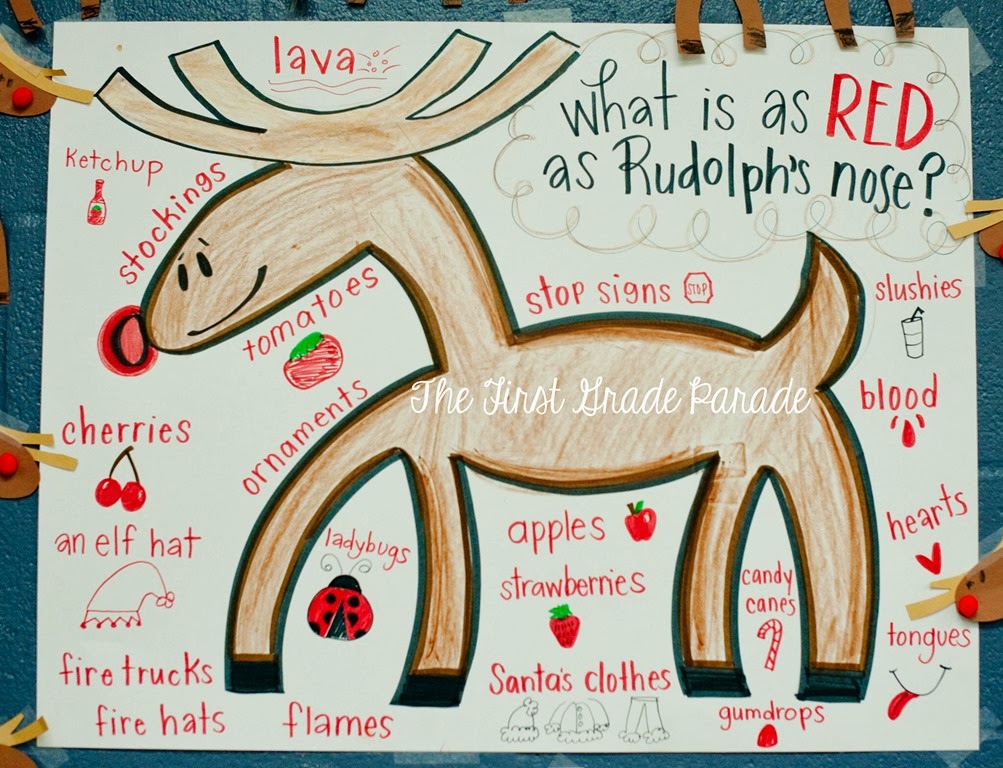 lava
What is as RED
as Rudolph's nose?
Ketchup
stockings
tomatoes
stop signs
STOP
slushies
The First Grade Parade
blood
ornaments
cherries
apples
hearts
an elf hat
ladybugs
strawberries
candy
canes
tongues
fire trucks
Santa's clothes
fire hats
flames
gumdrops